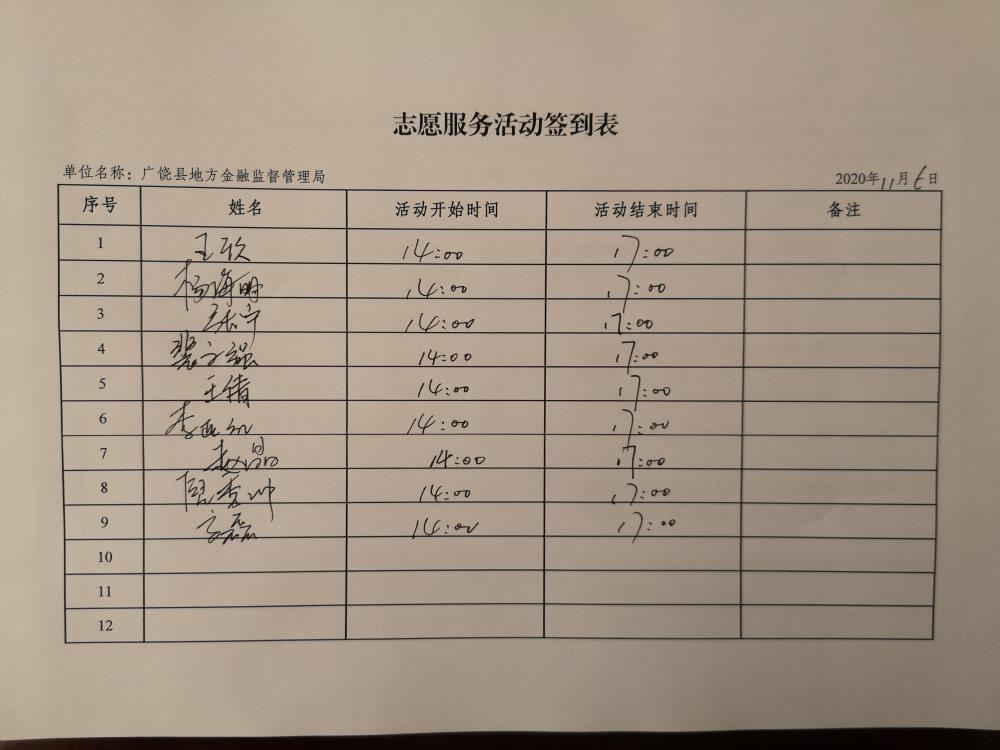 志愿服务活动签到表
单位名称：广饶县地方金融监督管理局 2020年11月6日
序号 姓名 活动开始时间 活动结束时间 备注
1 王欣 14:00 17:00
2 杨海明 14:00 17:00
3 张宁 14:00 17:00
4 14:00 17:00
5 王倩 14:00 17:00
6 李 14:00 17:00
7 赵晶 14:00 17:00
8 14:00 17:00
9 14:00 17:00
10
11
12